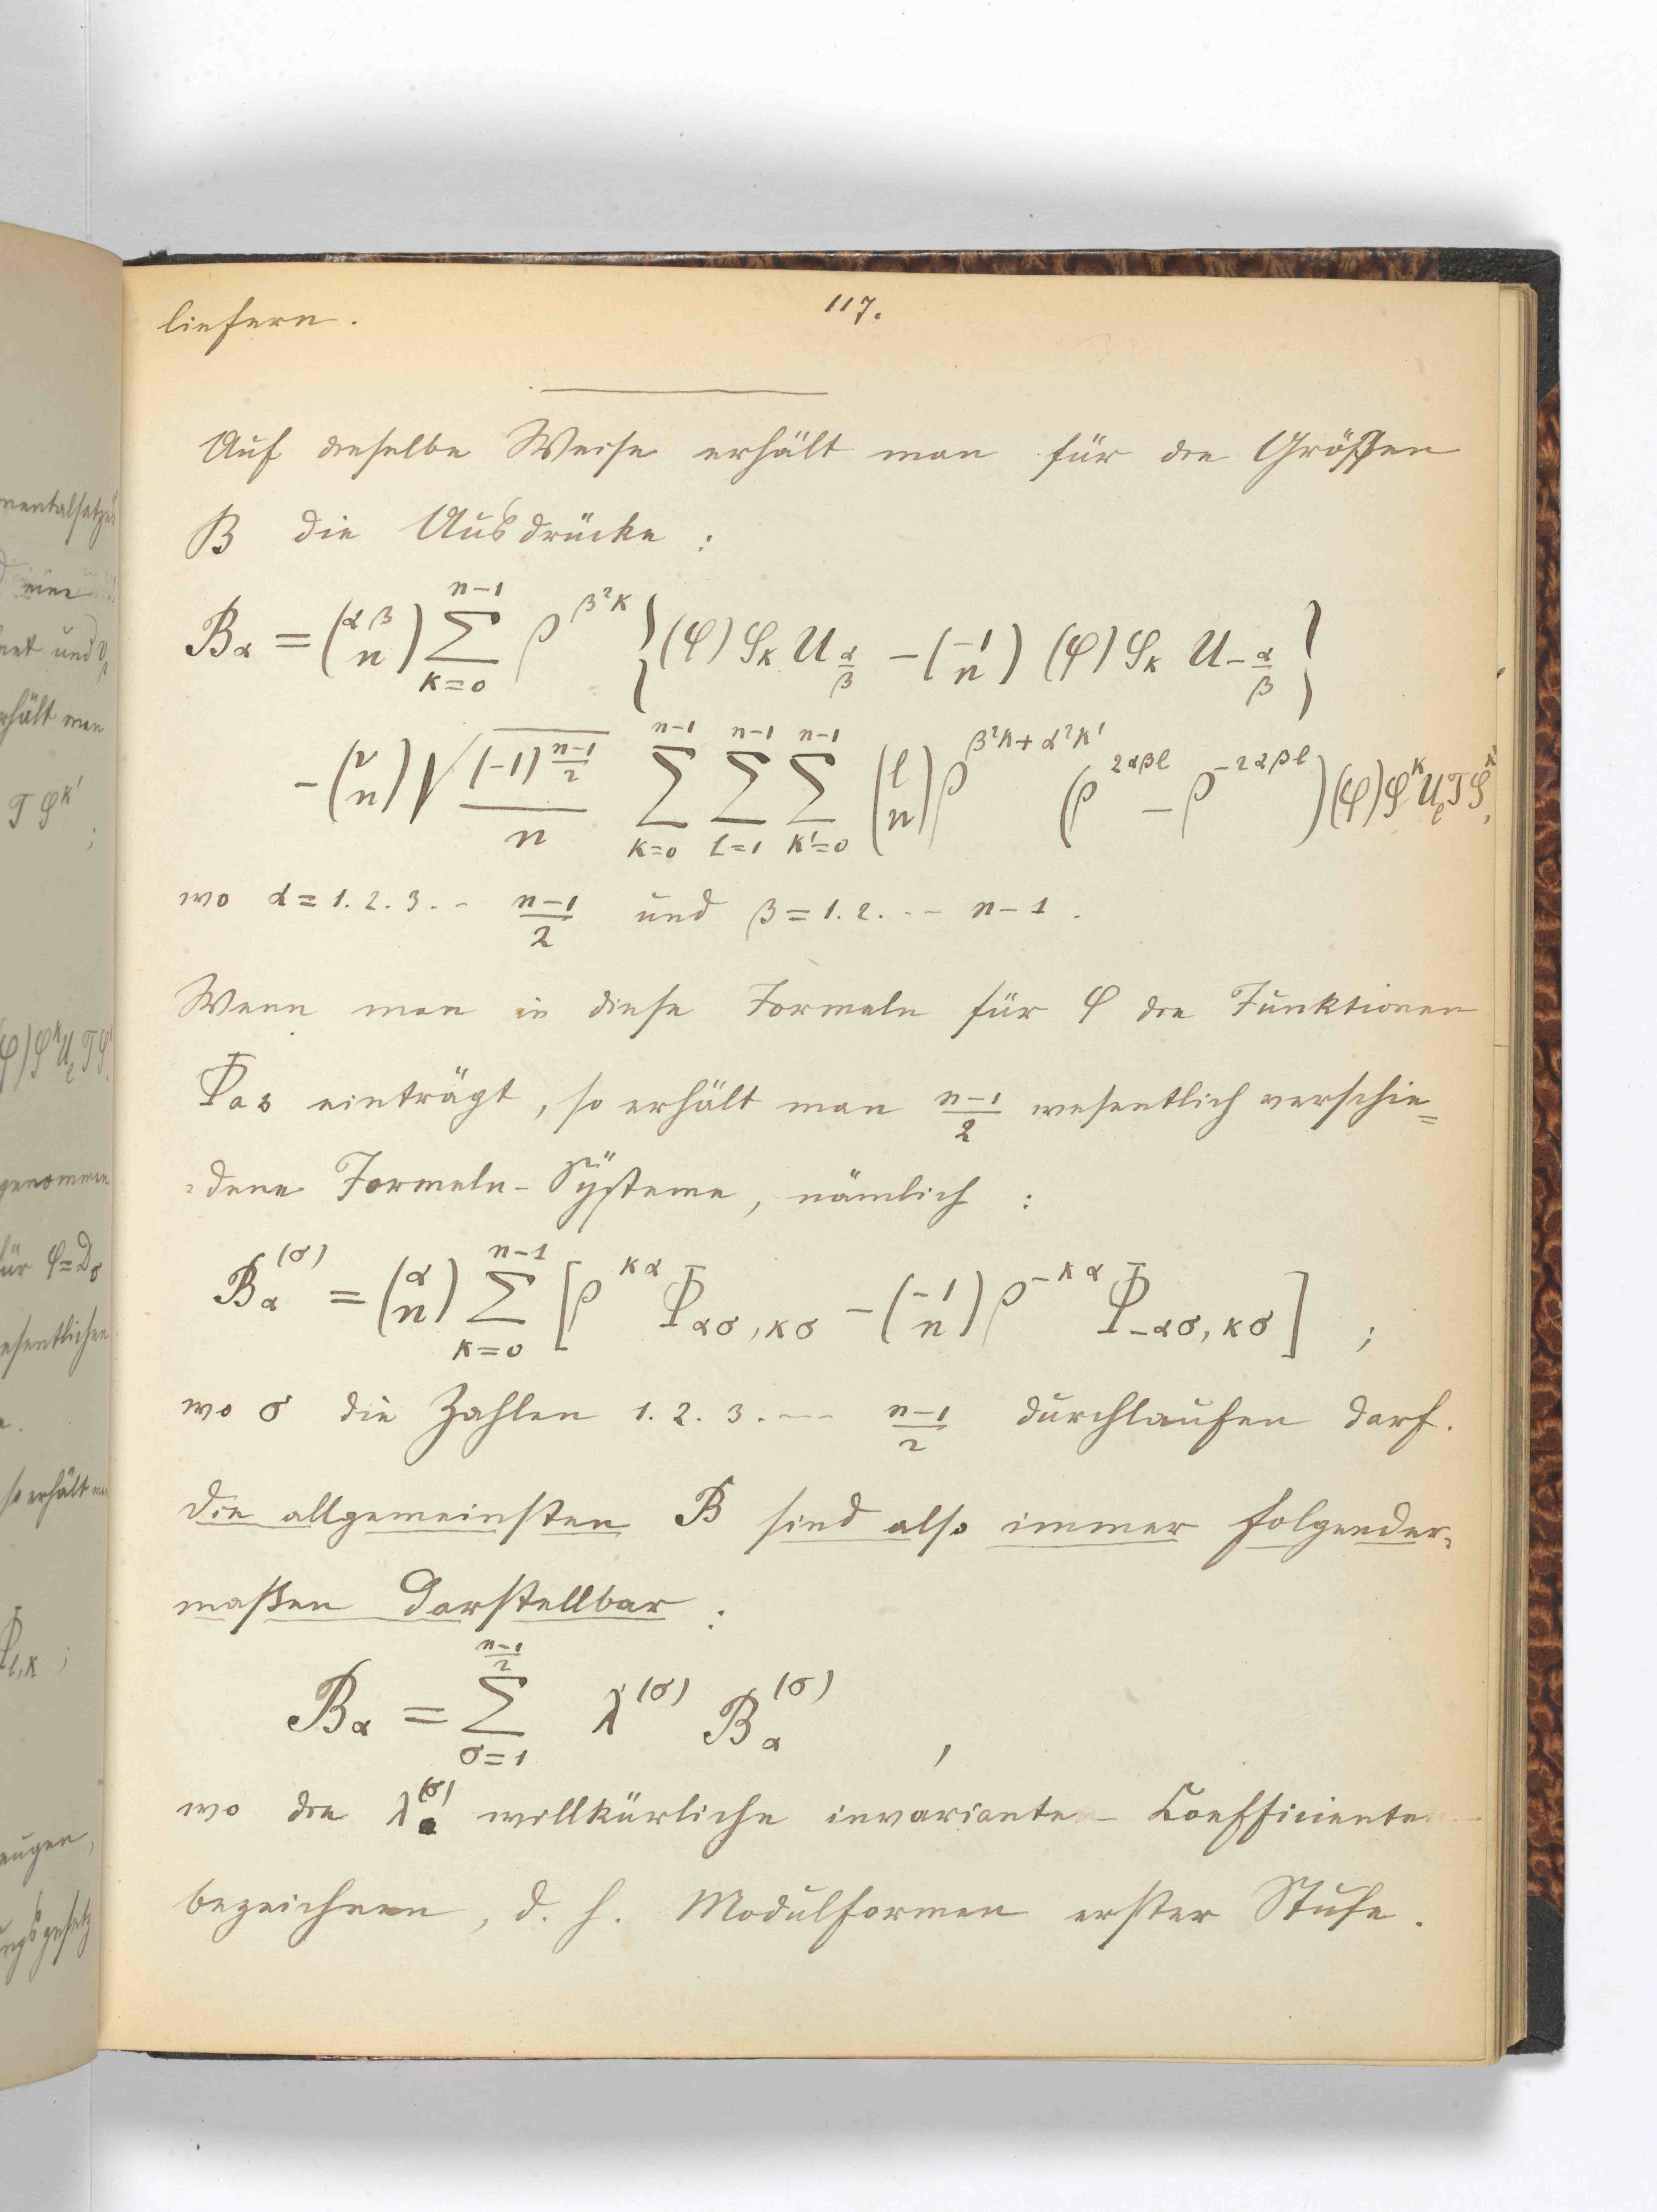 117.
liefern.
Auf dieselbe Weise erhält man für die Größen
B die Ausdrücke :
B_α = (αβ/n) ∑_{κ=0}^{n-1} ρ^{β²κ} {(φ) S_κ U_{α/β} - (-1/n) (φ) S_κ U_{-α/β}}
- (ν/n) √((-1)^{(n-1)/2}/n) ∑_{κ=0}^{n-1} ∑_{l=1}^{n-1} ∑_{κ'=0}^{n-1} (l/n) ρ^{β²κ+α²κ'} (ρ^{2αβl} - ρ^{-2αβl}) (φ) S^κ U_l T S^{κ'},
wo α = 1. 2. 3. - - (n-1)/2 und β = 1. 2. - - - n-1 .
Wenn man in diese Formeln für φ die Funktionen
Φ_{a b} einträgt, so erhält man (n-1)/2 wesentlich verschie=
=dene Formeln-Systeme, nämlich :
B_α^{(σ)} = (α/n) ∑_{κ=0}^{n-1} [ρ^{κα} Φ_{ασ, κσ} - (-1/n) ρ^{-κα} Φ_{-ασ, κσ}] ;
wo σ die Zahlen 1. 2. 3. - - - (n-1)/2 durchlaufen darf.
Die allgemeinsten B sind also immer folgender=
maßen darstellbar :
B_α = ∑_{σ=1}^{(n-1)/2} λ^{(σ)} B_α^{(σ)} ,
wo die λ^{(σ)} willkürliche invarianten Coefficienten
bezeichnen, d. h. Modulformen erster Stufe.
mentalsatzes
eine
und
erhält man
T S^{κ'} ;
(φ) S^κ U_l T S
genommen
für φ = D_σ
wesentlichen
so erhält man
Φ_{l,κ} ;